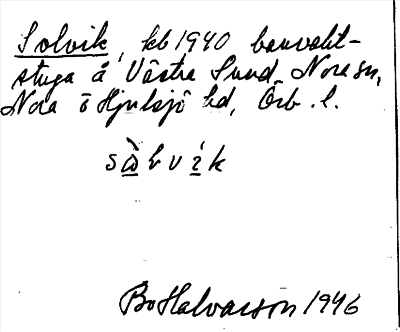 Solvik, kb 1940 banvakt-
stuga å Västra Sund, Nora sn,
Nora o Hjulsjö bd, Örb. l.
sàlvík
Bo Halvarson 1946